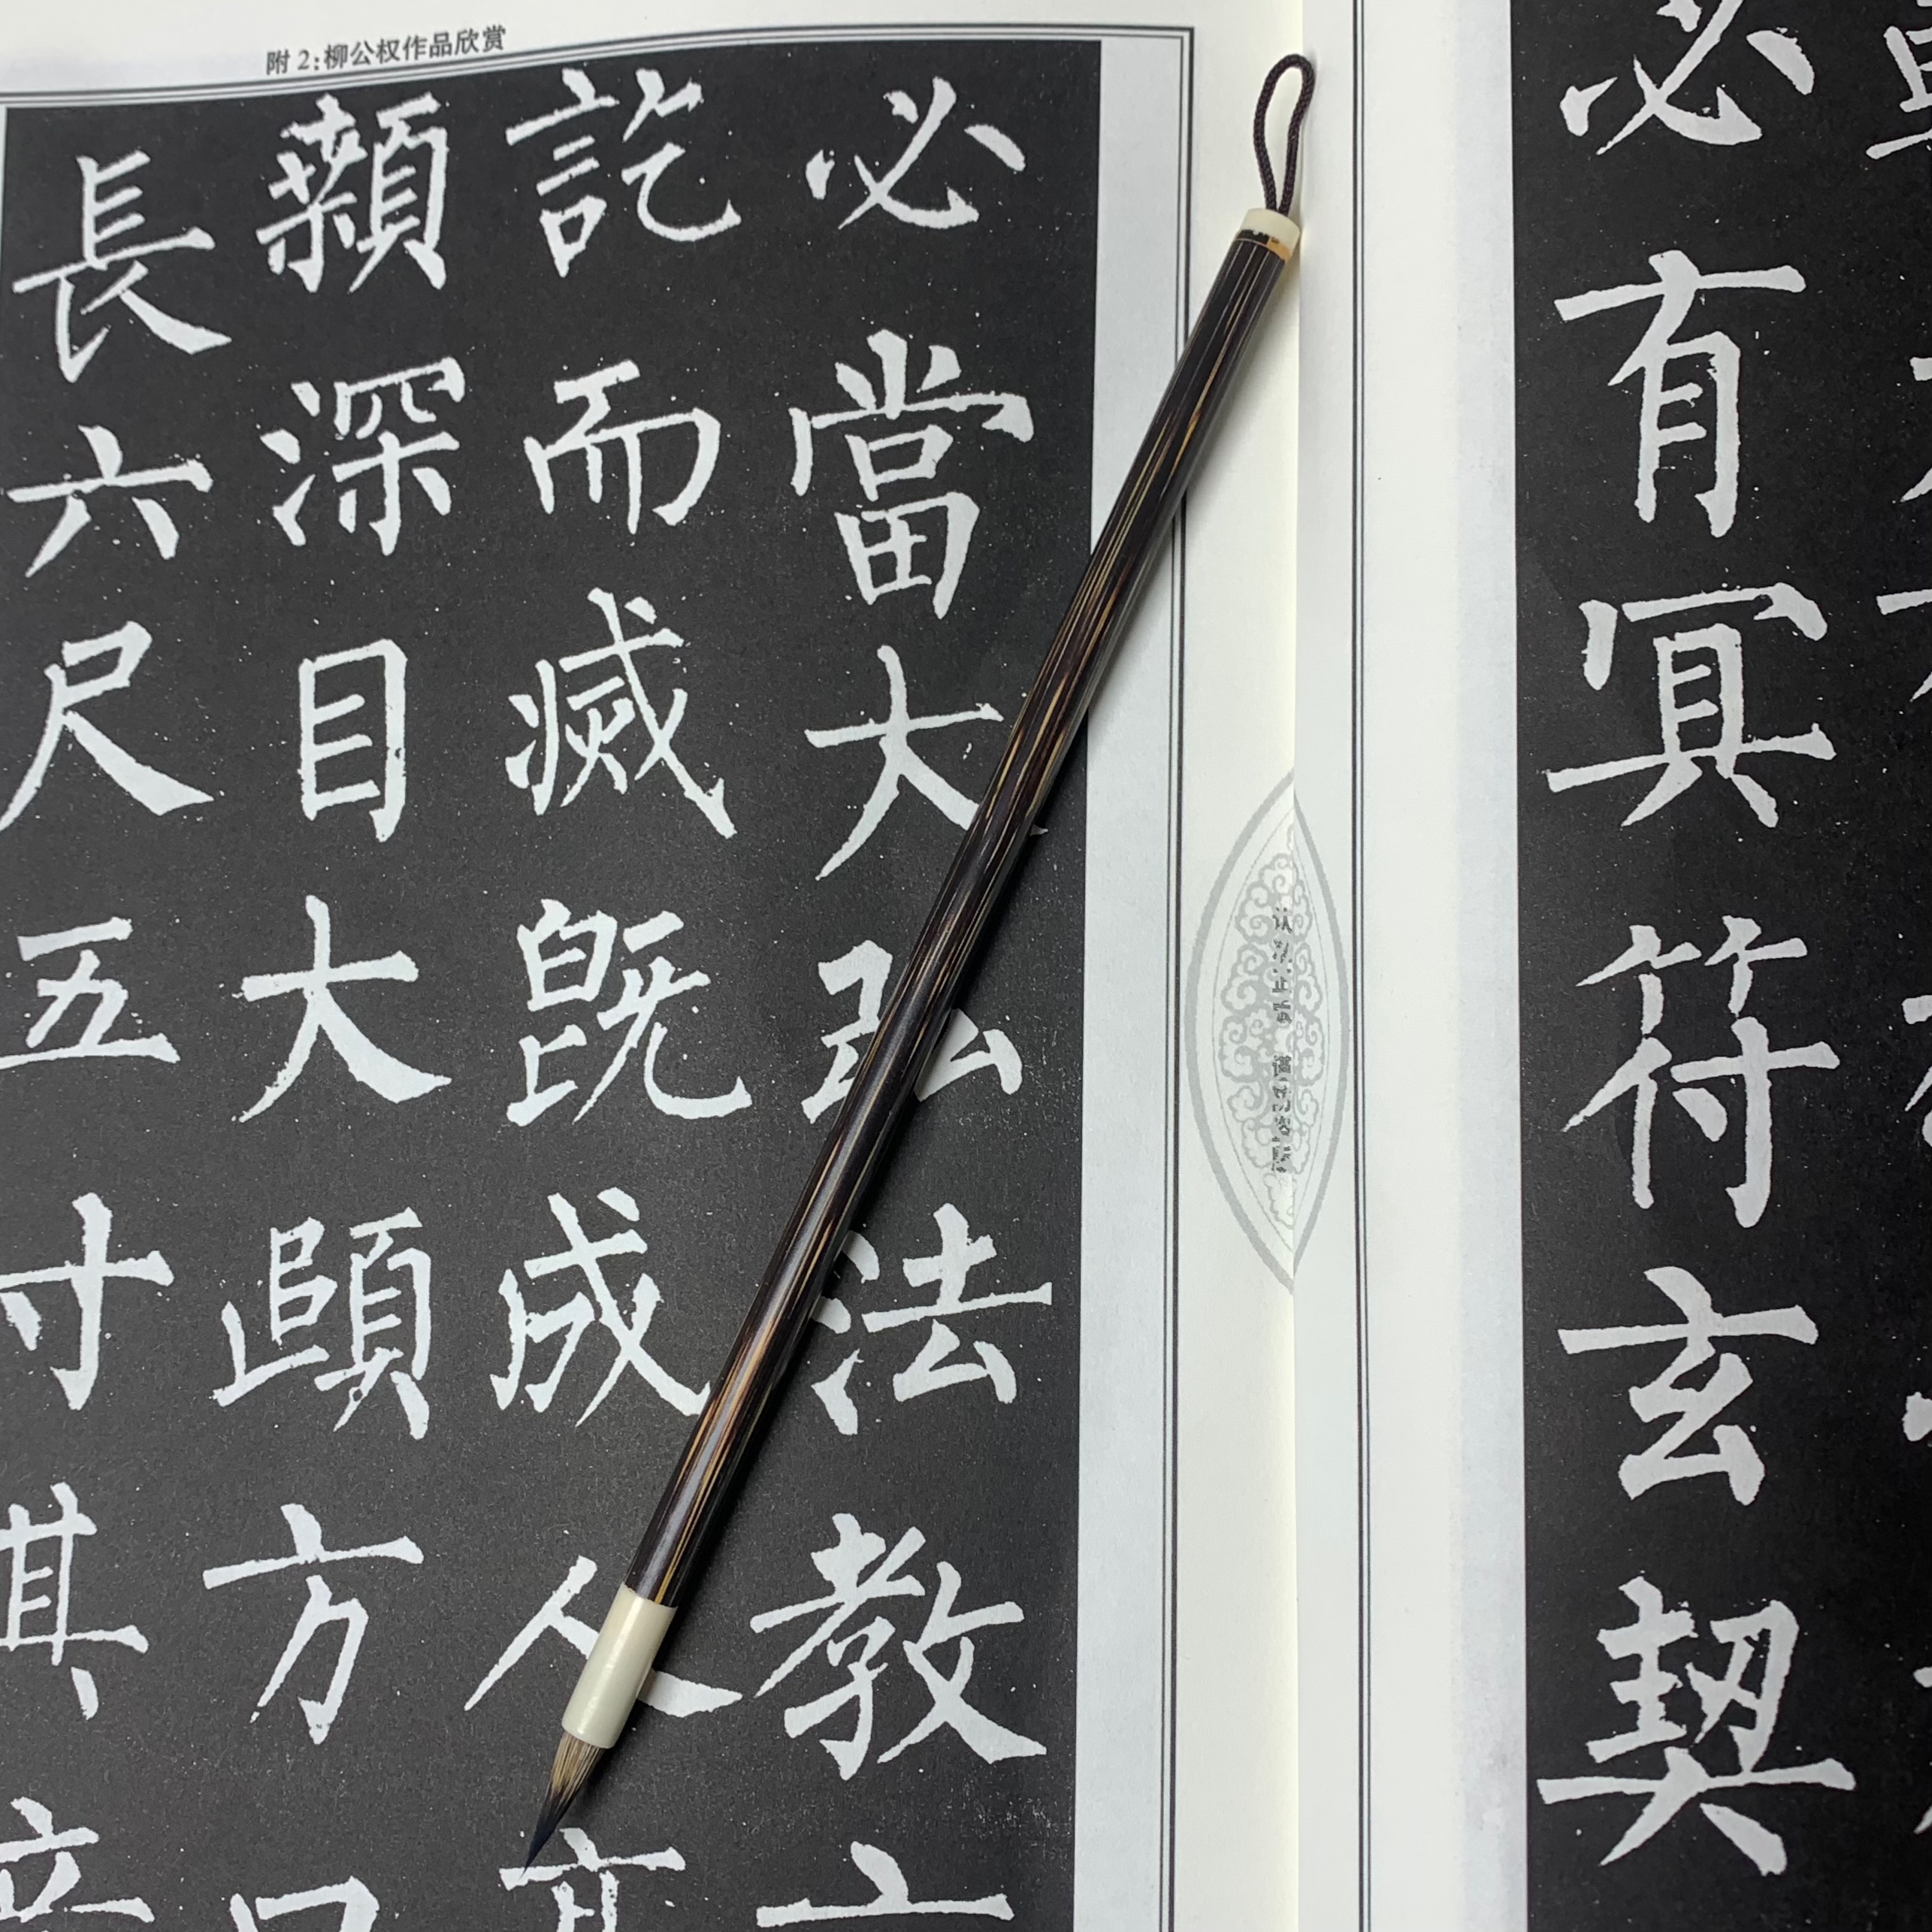 附 2：柳公权作品欣赏
必有冥符玄契
必當大弘法教
訖而滅既成人
顙深目大頤方口
長六尺五寸其音